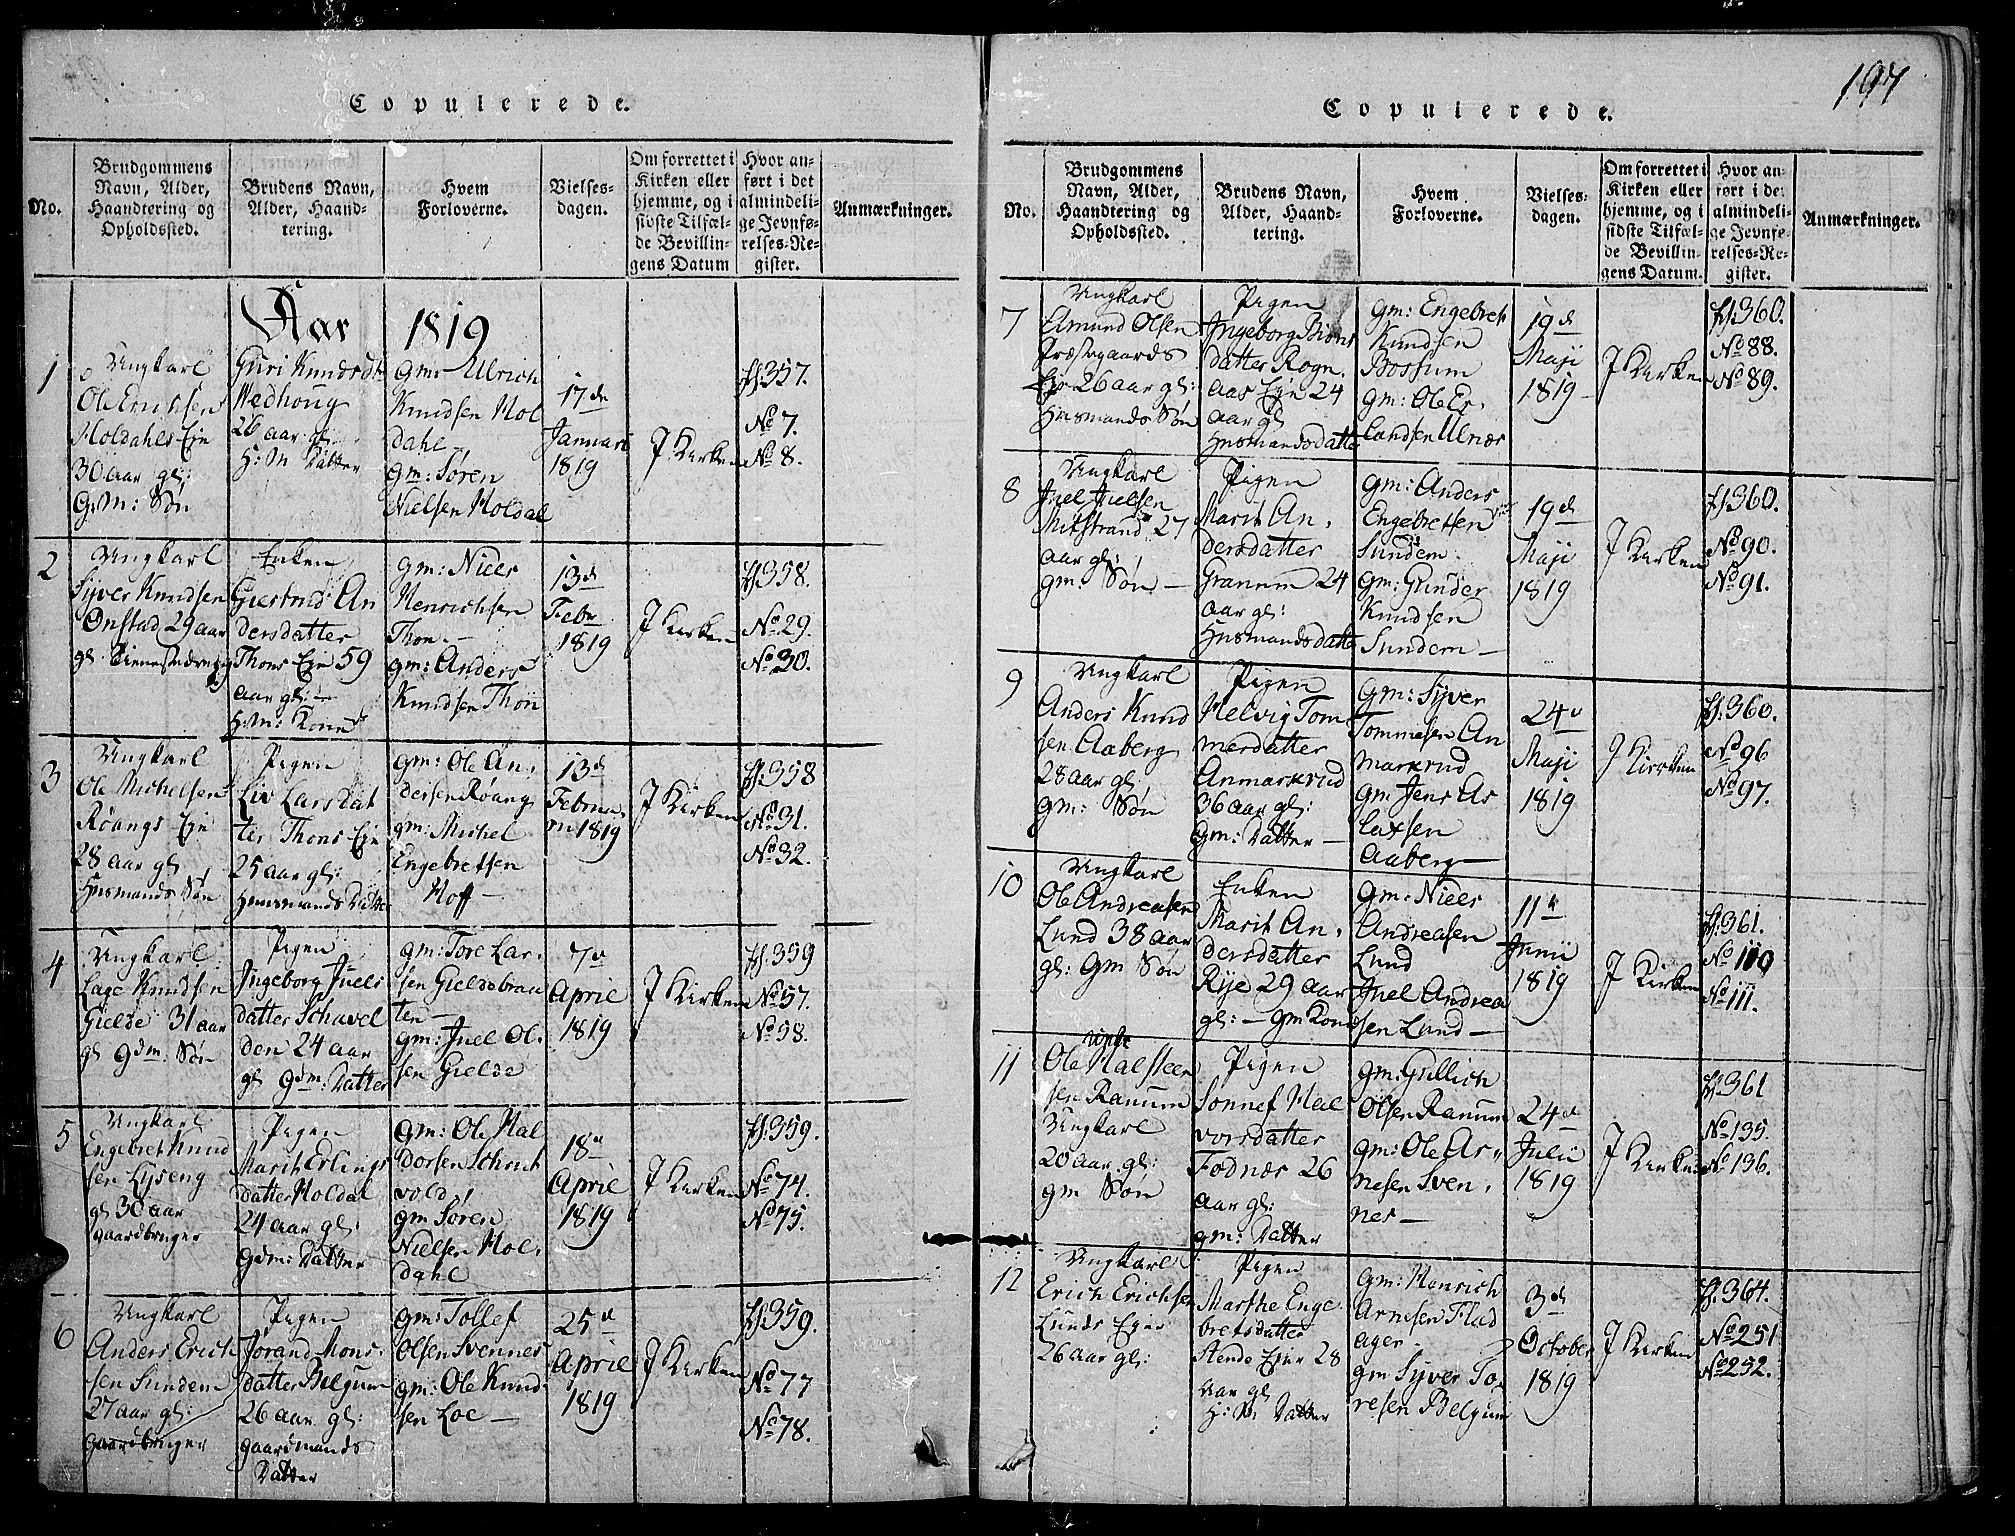 197
Copulerede.
No.
Brudgommens
Navn, Alder,
Haandtering og
Opholdssted.
Brudens Navn,
Alder, Haand-
tering.
Hvem
Forloverne.
Vielses-
dagen.
Om forrettet i
Kirken eller
hjemme, og i
sidste Tilfæl-
de Bevillin-
gens Datum
Hvor an-
ført i det
almindeli-
ge Jevnfø-
relses-Re-
gister.
Anmærkninger.
Aar 1819
1
Ungkarl
Ole Erichsen
Holdahls Eje
30 aar gl:
G:M: Søn
Guri Knudsdt
Wedhoug
26 aar gl:
H:M Datter
gm: Ulrich
Knudsen Hol
dahl
gm: Søren
Nielsen Holdal
17de
Januari
1819
J Kirken
fl:357.
No 7.
No 8.
2
Ungkarl
Syver Knudsen
Onstad 29 aar
gl:
Enken
Giertrud An
dersdatter
Thons Eje 59
aar gl:
H:M: Kone
gm: Niels
Henrichsen
Thon
gm: Anders
Knudsen Thon
13de
Febr
1819
J Kirken
fl:358.
No 29.
No 30.
3
Ungkarl
Ole Michelsen
Røangs Eje
28 aar gl
Husmands Søn
Pigen
Liv Larsdat
ter Thons Eje
25 aar gl:
Husmands Datter
gm: Ole An,
dersen Røang
gm: Michel
Engebretsen
Hoff
13de
Februa
ri 1819
J Kirken
fl:358
No 31.
No 32.
4
Ungkarl
Lage Knudsen
Gielde 31 aar
gl gdm: Søn
Pigen
Ingeborg Juels
datter Schavel
den 24 aar
gl gdm: Datter
gm: Tore Lar,
sen Gieldebrau
ten
gm: Juel Ol,
sen Gielde
7de
April
1819
J Kirken
fl:359
No 57.
No 58.
5
Ungkarl
Engebret Knud
sen Lyseng
gl 30 aar
gaardbruger
Pigen
Marit Erlings
datter Holdal
24 aar gl:
gdm: Datter
gm: Ole Hal
dorsen Schut
vold
gm Søren
Nielsen Hol,
dahl
18de
April
1819
J Kirken
fl:359.
No 74.
No 75.
6
Ungkarl
Anders Erich
sen Sundem
27 aar gl:
gaardbruger
Pigen
Jorand Mons,
datter Belgum
26 aar gl:
gaardmands
Datter
gm: Tollef
Olsen Svennes
gm: Ole Knud
sen Loe
25de
April
1819
J Kirken
fl:359.
No 77
No 78.
Copulerede.
No.
Brudgommens
Navn, Alder,
Haandtering og
Opholdssted.
Brudens Navn,
Alder, Haand-
tering.
Hvem
Forloverne.
Vielses-
dagen.
Om forrettet i
Kirken eller
hjemme, og i
sidste Tilfæl-
de Bevillin-
gens Datum.
Hvor an-
ført i det
almindeli-
ge Jevnfø-
relses-Re-
gister.
Anmærkninger.
7
Ungkarl
Amund Olsen
Præstegaards
Eje 26 aar gl:
Husmands Søn
Pigen
Ingeborg Biørns
datter Rogn,
aas Eje 24
aar gl
Husmandsdatter
gm: Engebret
Knudsen
Bossum
gm: Ole Er,
landsen Ulnæs
19de
Maji
1819
J Kirken
fl:360.
No 88.
No 89.
8
Ungkarl
Juel Juelsen
Midstrand 27
aar gl:
gm: Søn
Pigen
Marit An,
dersdatter
Granum 24
aar gl:
Husmandsdatter
gm: Anders
Engebretsen
Sundem
gm: Gunder
Knudsen
Sundem
19de
Maji
1819
J Kirken
fl:360.
No 90.
No 91.
9
Ungkarl
Anders Knud
sen Aaberg
28 aar gl:
gm: Søn
Pigen
Helvig Tom
mesdatter
Anmarkrud
36 aar gl:
gm: Datter
gm: Syver
Tommesen An
markrud
gm Jens As
laksen
Aaberg
24de
Maji
1819
J Kirken
fl:360.
No 96
No 97.
10
Ungkarl
Ole Andreasen
Lund 38 aar
gl: gm Søn
Enken
Marit An,
dersdatter
Rye 29 aar
gl: gm Kone
gm: Niels
Andreasen
Lund
Juel Andrea
sen Lund
11te
Junii
1819
J Kirken
fl:361.
No 110
No 111.
11
Ole Halsteen
sen Ranum
Ungkarl
20 aar gl:
gm Søn
Pigen
Sonnef Hal
vorsdatter
Fodnæs 26
aar gl:
gm: Datter
gm: Gullich
Olsen Ranum
gm: Ole Ar,,
nesen Sven,
nes
24de
Julii
1819
J Kirken
fl:361
No 135.
No 136.
12
Ungkarl
Erich Erichsen
Lunds Ejer
26 aar gl:
Pigen
Marthe Enge
bretsdatter
Stende Ejer 28
aar gl
H: M Datter
gm: Henrich
Arnesen Flad
ager
gm Syver To
resen Belgum
3de
October
1819
J Kirken
fl:364.
No 251
No 252.